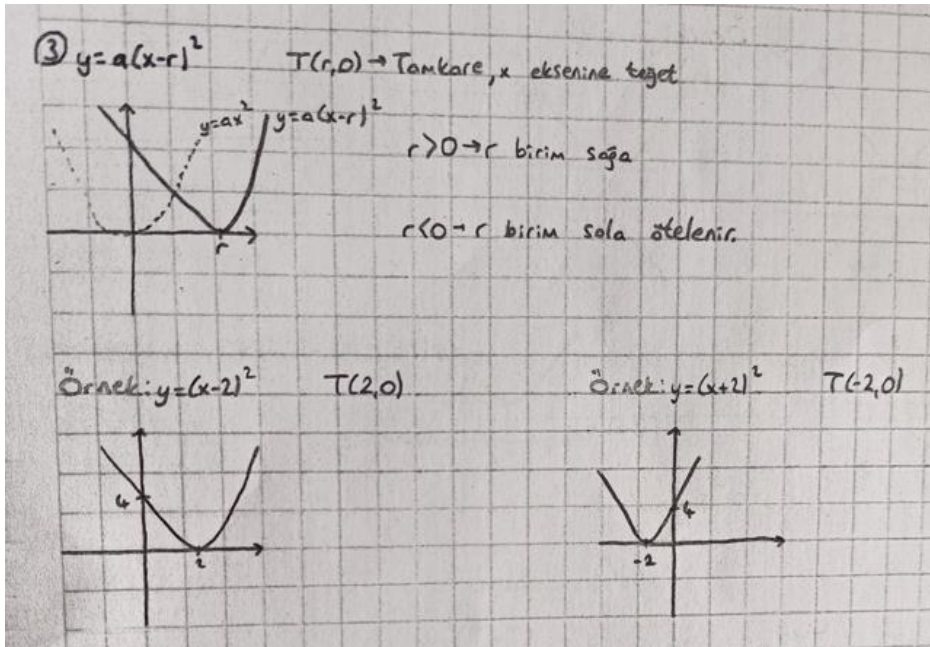 ③ y=a(x-r)² T(r,0)→Tamkare, x eksenine teğet
y=ax² y=a(x-r)²
r>0→r birim sağa
r<0→r birim sola ötelenir.
r
Örnek: y=(x-2)² T(2,0) Örnek: y=(x+2)² T(-2,0)
4 4
2 -2